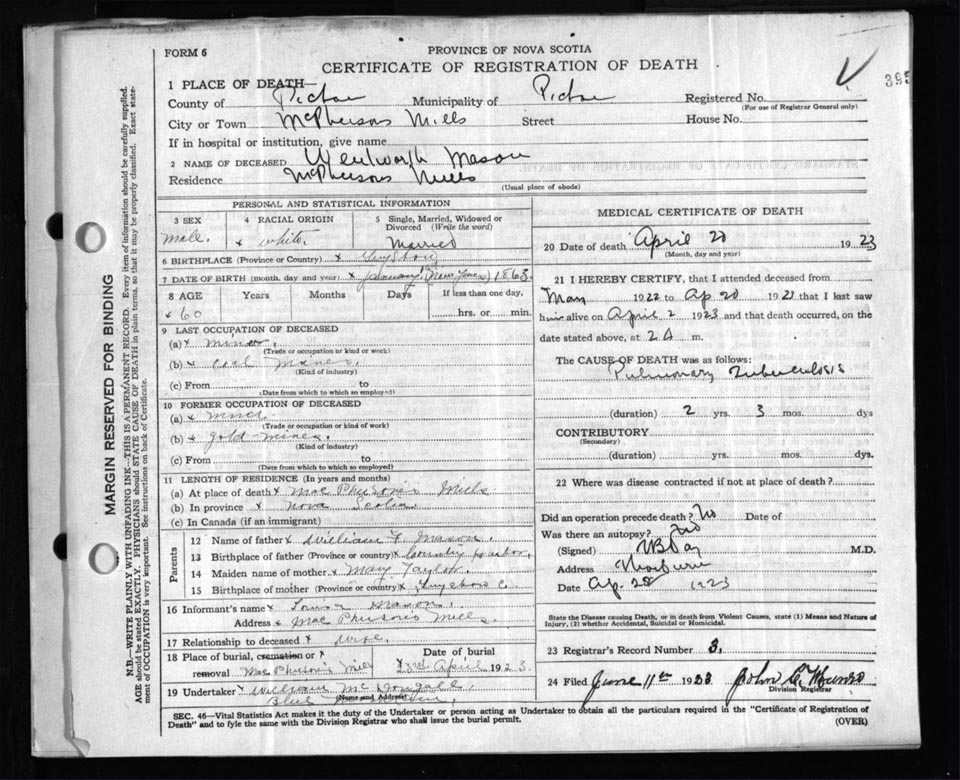 395
FORM 6
PROVINCE OF NOVA SCOTIA
CERTIFICATE OF REGISTRATION OF DEATH
1 PLACE OF DEATH—
County of Pictou Municipality of Pictou Registered No.
(For use of Registrar General only)
City or Town McPhersons Mills Street House No.
If in hospital or institution, give name
2 NAME OF DECEASED Wentworth Mason
Residence McPhersons Mills
(Usual place of abode)
MARGIN RESERVED FOR BINDING
N.B.—WRITE PLAINLY WITH UNFADING INK—THIS IS A PERMANENT RECORD. Every item of information should be carefully supplied.
AGE should be stated EXACTLY. PHYSICIANS should STATE CAUSE OF DEATH in plain terms, so that it may be properly classified. Exact state-
ment of OCCUPATION is very important. See instructions on back of Certificate.
PERSONAL AND STATISTICAL INFORMATION
3 SEX
male.
4 RACIAL ORIGIN
x white.
5 Single, Married, Widowed or
Divorced (Write the word)
Married
6 BIRTHPLACE (Province or Country) x Guysboro
7 DATE OF BIRTH (month, day and year) x January 1863.
8 AGE Years Months Days If less than one day,
x 60 hrs. or min.
9 LAST OCCUPATION OF DECEASED
(a) x miner.
(Trade or occupation or kind or work)
(b) x Coal Mines.
(Kind of industry)
(c) From to
(Date from which to which so employed)
10 FORMER OCCUPATION OF DECEASED
(a) x miner
(Trade or occupation or kind of work)
(b) x gold-mines.
(Kind of industry)
(c) From to
(Date from which to which so employed)
11 LENGTH OF RESIDENCE (In years and months)
(a) At place of death x Mac Pherson's Mills
(b) In province x Nova Scotia
(c) In Canada (if an immigrant)
Parents
12 Name of father x William F. Mason.
13 Birthplace of father (Province or country) x Country Harbor.
14 Maiden name of mother x Mary Taylor.
15 Birthplace of mother (Province or country) x Guysboro C.
16 Informant's name x Louisa Mason.
Address x Mac Pherson's Mills.
17 Relationship to deceased x Wife.
18 Place of burial, cremation or x Date of burial or
removal Mac Pherson's Mill 23rd April 1923.
19 Undertaker x William McDougall.
(Name and Address)
Blue
MEDICAL CERTIFICATE OF DEATH
20 Date of death April 20 1923
(Month, day and year)
21 I HEREBY CERTIFY, that I attended deceased from
May 1922 to Ap 20 1923 that I last saw
him alive on April 2 1923 and that death occurred, on
date stated above, at 2 A m.
The CAUSE OF DEATH was as follows:
Pulmonary Tuberculosis
(duration) 2 yrs. 3 mos. dys
CONTRIBUTORY
(Secondary)
(duration) yrs. mos. dys.
22 Where was disease contracted if not at place of death?
Did an operation precede death? No Date of
Was there an autopsy? No
(Signed) M.D.
Address
Date Ap. 28 1923
State the Disease causing Death, or in death from Violent Causes, state (1) Means and Nature of
Injury, (2) whether Accidental, Suicidal or Homicidal.
23 Registrar's Record Number 3.
24 Filed June 11th 1923 John C.
Division Registrar
SEC. 46—Vital Statistics Act makes it the duty of the Undertaker or person acting as Undertaker to obtain all the particulars required in the "Certificate of Registration of
Death" and to fyle the same with the Division Registrar who shall issue the burial permit. (OVER)